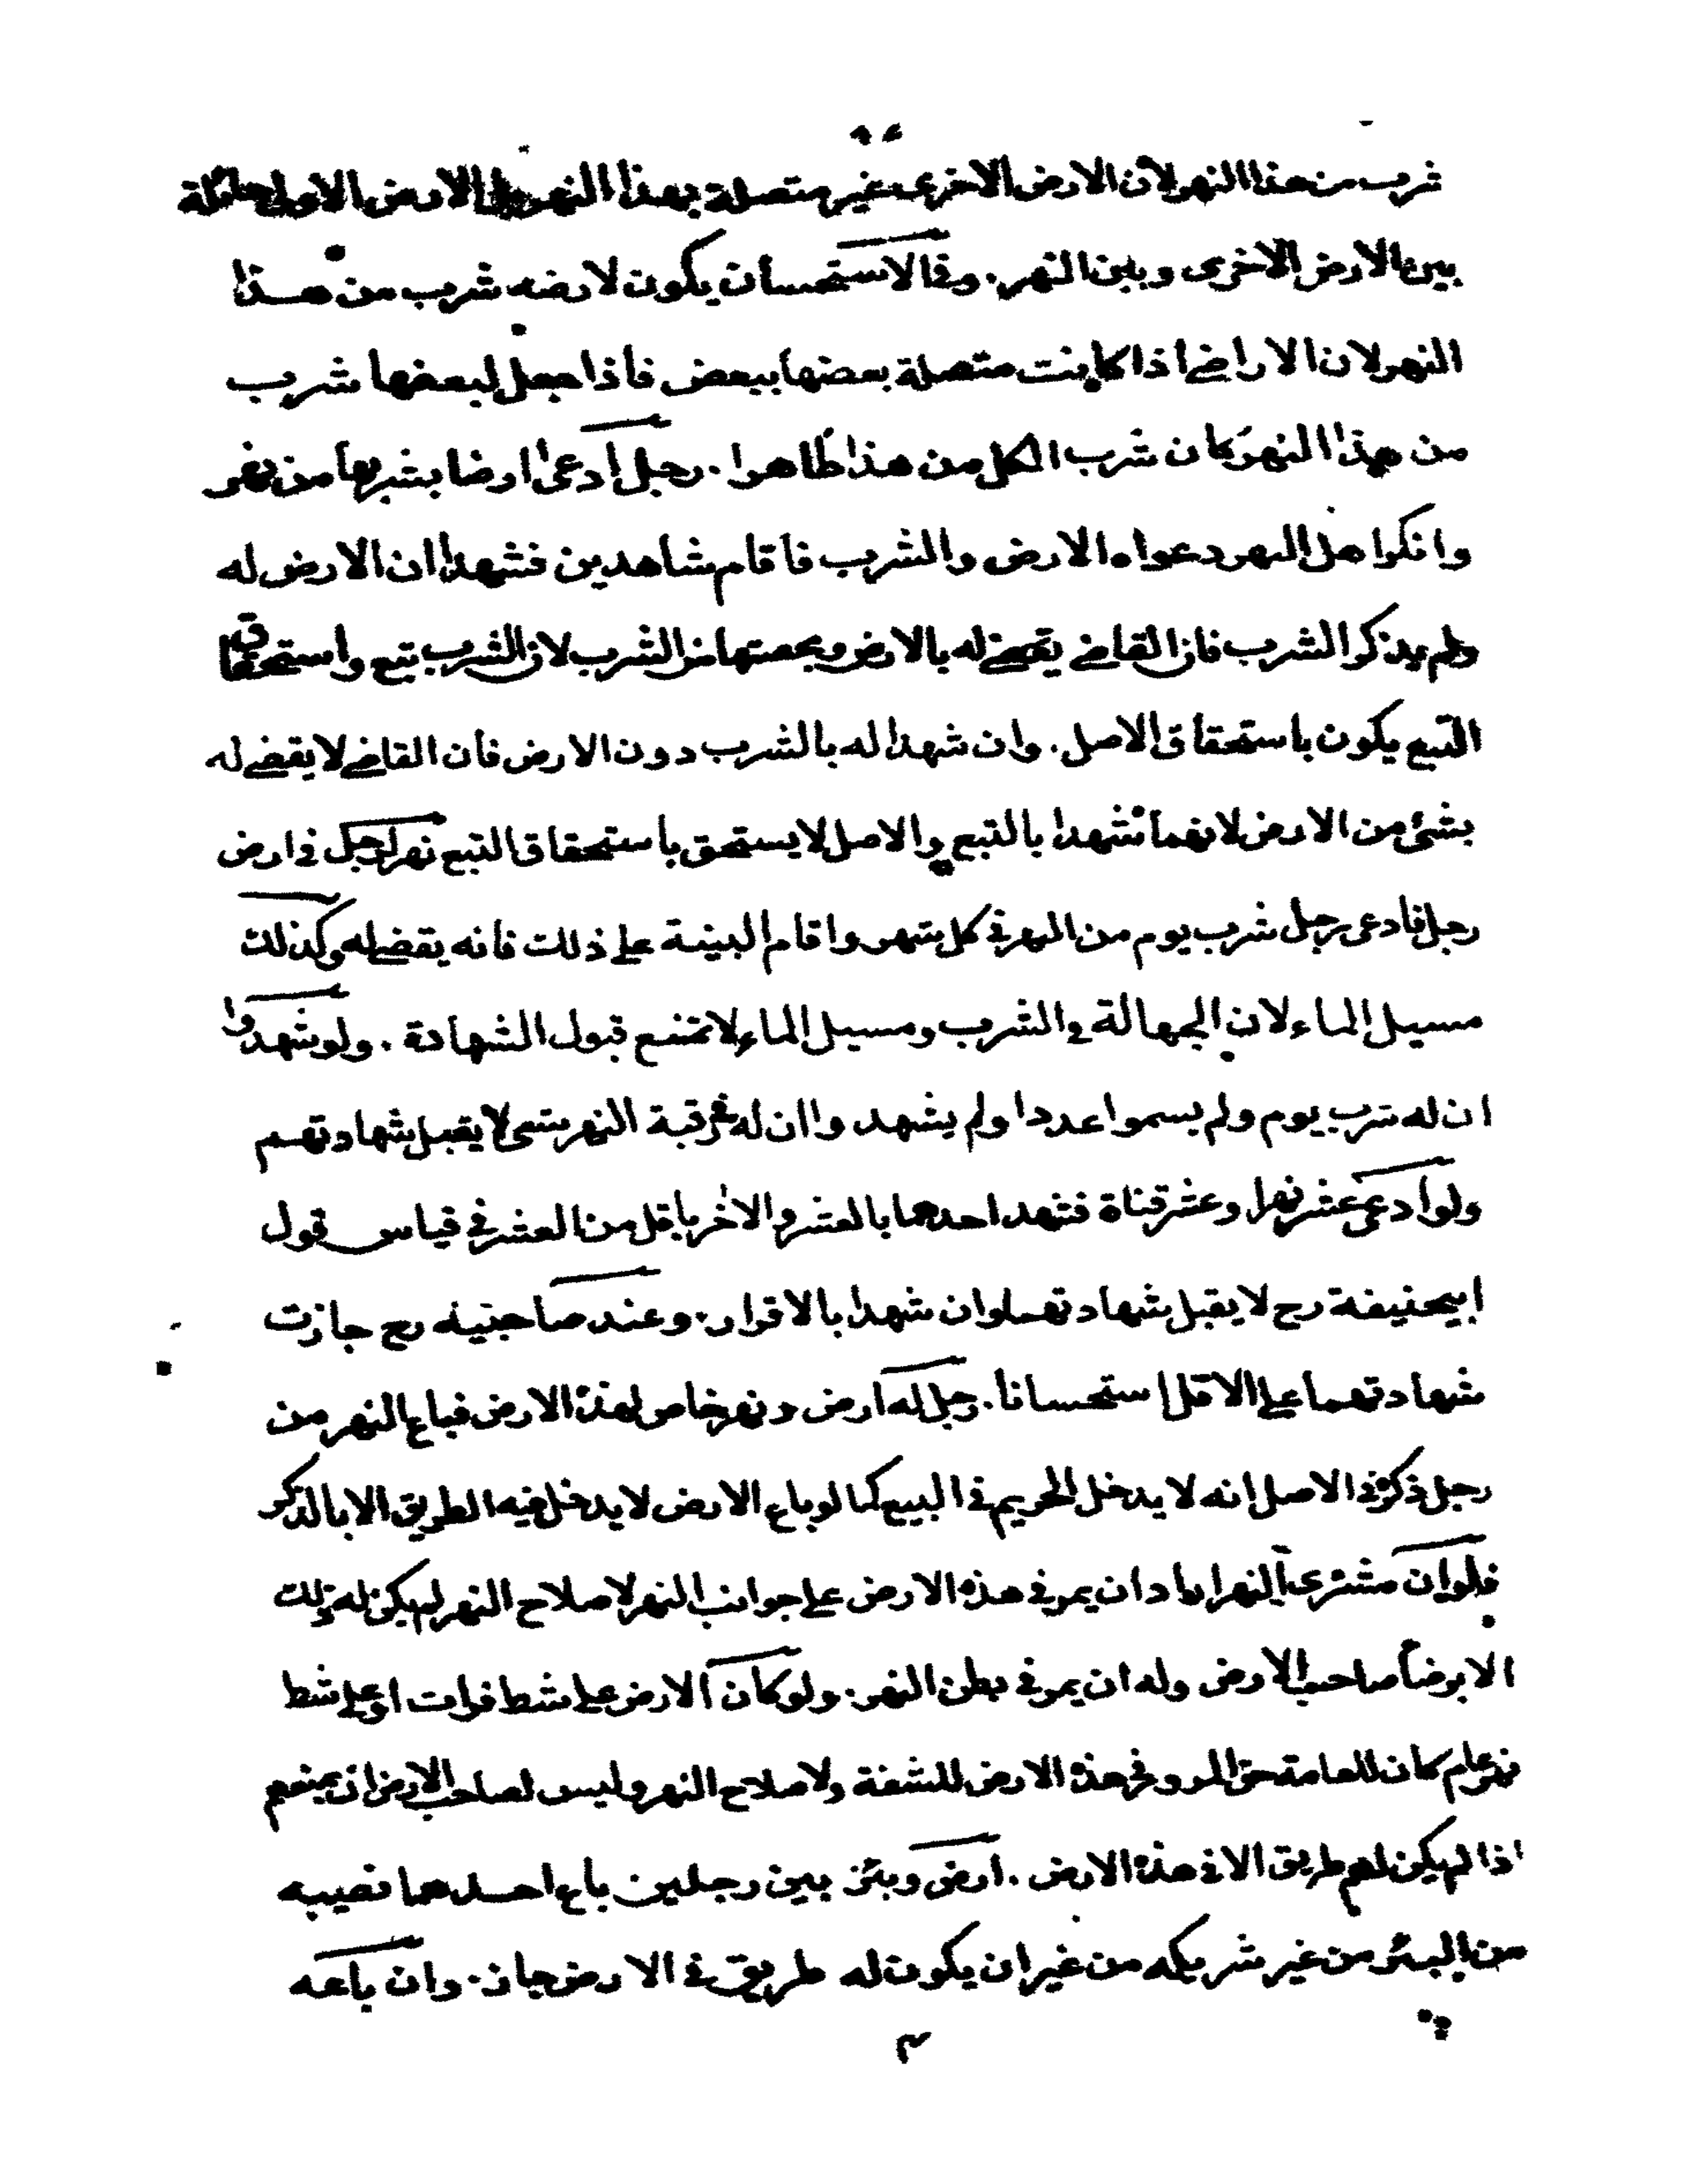 شرب من هذا النهر لان الارض الاخرى غير متصلة بهذا النهر الارض الاولى حائلة
بين الارض الاخرى وبين النهر. وفى الاستحسان يكون لارضه شرب من هذا
النهر لان الاراضى اذا كانت متصلة بعضها ببعض فاذا جعل لبعضها شرب
من هذا النهر كان شرب الكل من هذا ظاهرا. رجل ادعى ارضا بشربها من نهر
وانكر اهل النهر دعواه الارض والشرب فاقام شاهدين فشهدا ان الارض له
ولم يذكر الشرب فان القاضى يقضى له بالارض وبحصتها من الشرب لان الشرب تبع واستحقاق
التبع يكون باستحقاق الاصل. وان شهدا له بالشرب دون الارض فان القاضى لا يقضى له
بشئ من الارض لانهما شهدا بالتبع والاصل لا يستحق باستحقاق التبع نهر لرجل فى ارض
رجل فادعى رجل شرب يوم من النهر فى كل شهر واقام البينة على ذلك فانه يقضى له وكذلك
مسيل الماء لان الجهالة فى الشرب ومسيل الماء لا تمنع قبول الشهادة. ولو شهدوا
ان له شرب يوم ولم يسموا عددا ولم يشهدوا ان له فى رقبة النهر شئ لا يقبل شهادتهم
ولو ادعى عشر نهر او عشر قناة فشهد احدهما بالعشر والاخر باقل من العشر فى قياس قول
ابيحنيفة رح لا يقبل شهادتهما وان شهدا بالاقرار. وعند صاحبيه رح جازت
شهادتهما على الاقل استحسانا. رجل له ارض ونهر خاص لهذه الارض فباع النهر من
رجل ذكر فى الاصل انه لا يدخل الحريم فى البيع كما لو باع الارض لا يدخل فيه الطريق الا بالذكر
فلو ان مشترى النهر اراد ان يمر فى هذه الارض على جوانب النهر لاصلاح النهر لم يكن له ذلك
الا برضا صاحب الارض وله ان يمر فى بطن النهر. ولو كان الارض على شط فرات او على شط
نهر عام كان للعامة حق المرور فى هذه الارض للشفة ولاصلاح النهر وليس لصاحب الارض ان يمنعهم
اذا لم يكن لهم طريق الا فى هذه الارض. ارض وبئر بين رجلين باع احدهما نصيبه
من البئر من غير شريكه من غير ان يكون له طريق فى الارض جاز. وان باعه